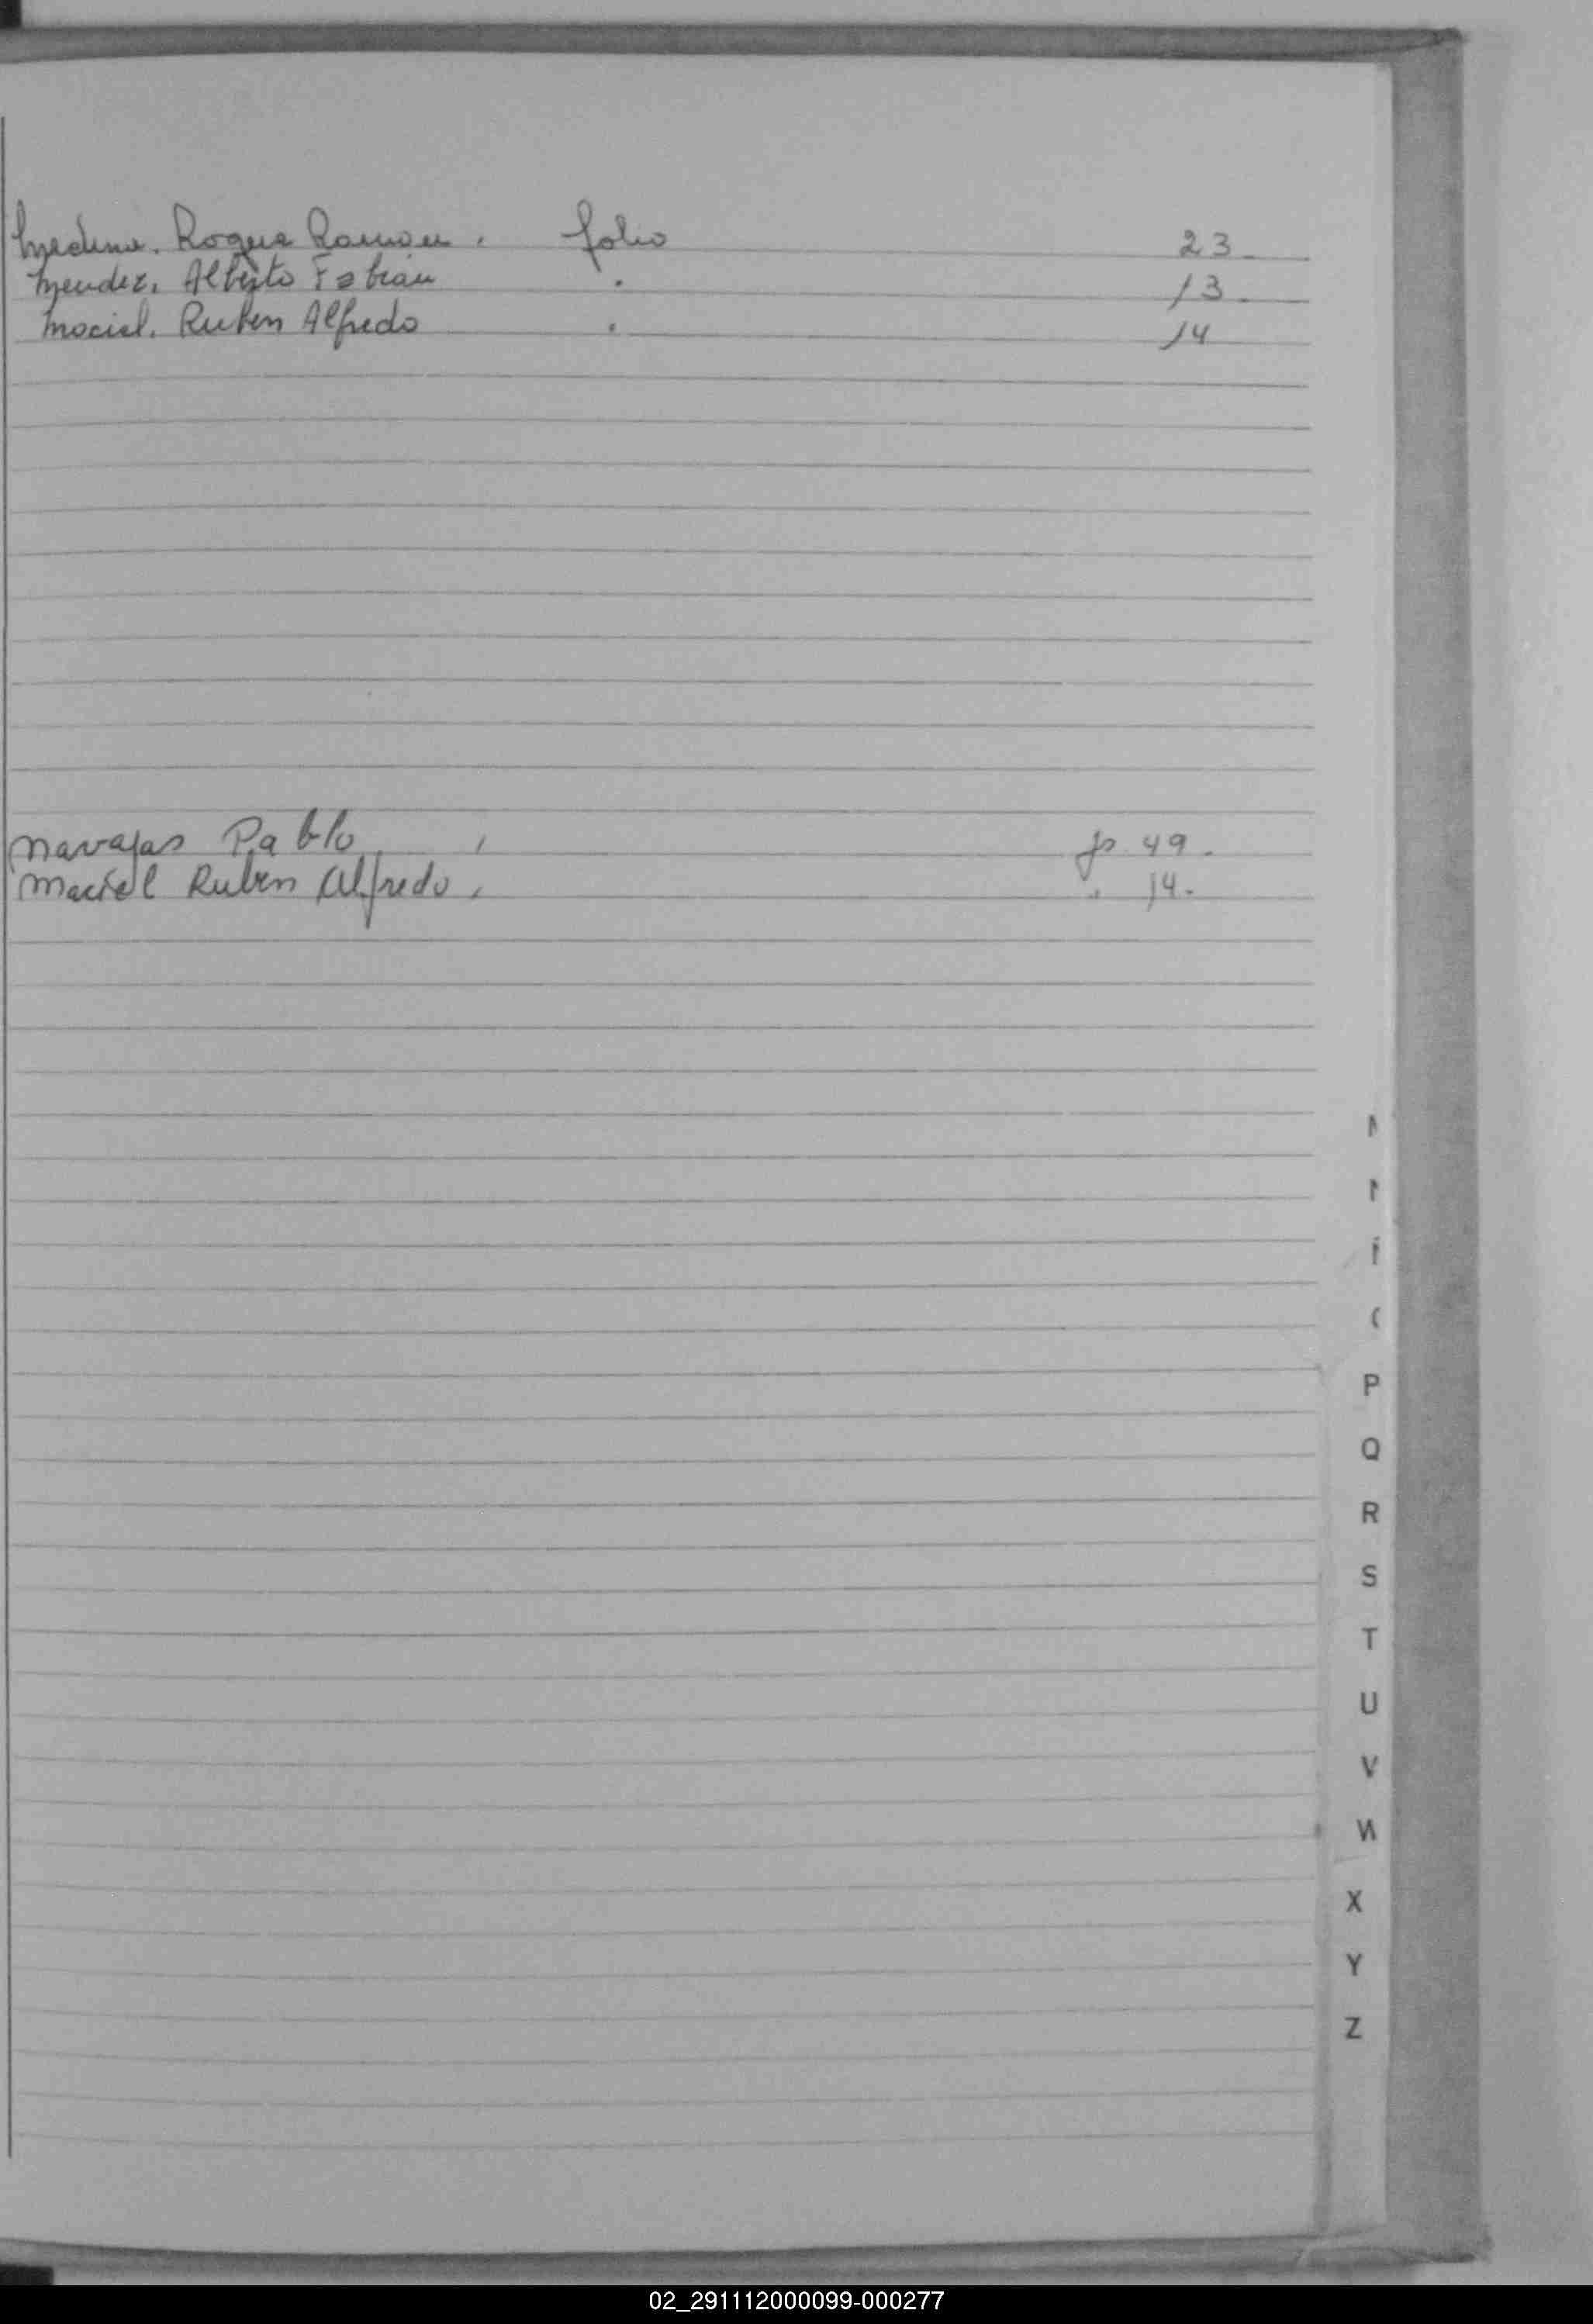 Medina. Roque Ramon. folio 23.
Mendez. Alberto Fabian . 13.
Maciel. Ruben Alfredo . 14
Navajas Pablo, fo 49.
Maciel Ruben Alfredo, " 14.
M
N
Ñ
O
P
Q
R
S
T
U
V
W
X
Y
Z
02_291112000099-000277